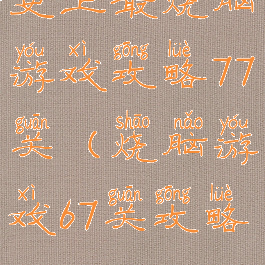 史上最烧脑
yóu xì gōng lüè
游戏攻略77
guān shāo nǎo yóu
关（烧脑游
xì guān gōng lüè
戏67关攻略